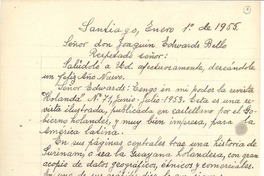 Santiago, Enero 1º de 1955.
Señor don Joaquín Edwards Bello
Respetado señor:
Salúdole a Ud. afectuosamente, deseándole
un feliz Año Nuevo.
Señor Edwards: Tengo en mi poder la revista
"Holanda" Nº 71, Junio-Julio 1953. Esta es una re-
vista ilustrada, publicada en castellano por el Go-
bierno holandés, y muy bien impresa, para la
América Latina.
En sus páginas centrales trae una historia de
Surinam, o sea la Guayana Holandesa, con gran
acopio de datos geográficos, étnicos y comerciales.
En uno de sus